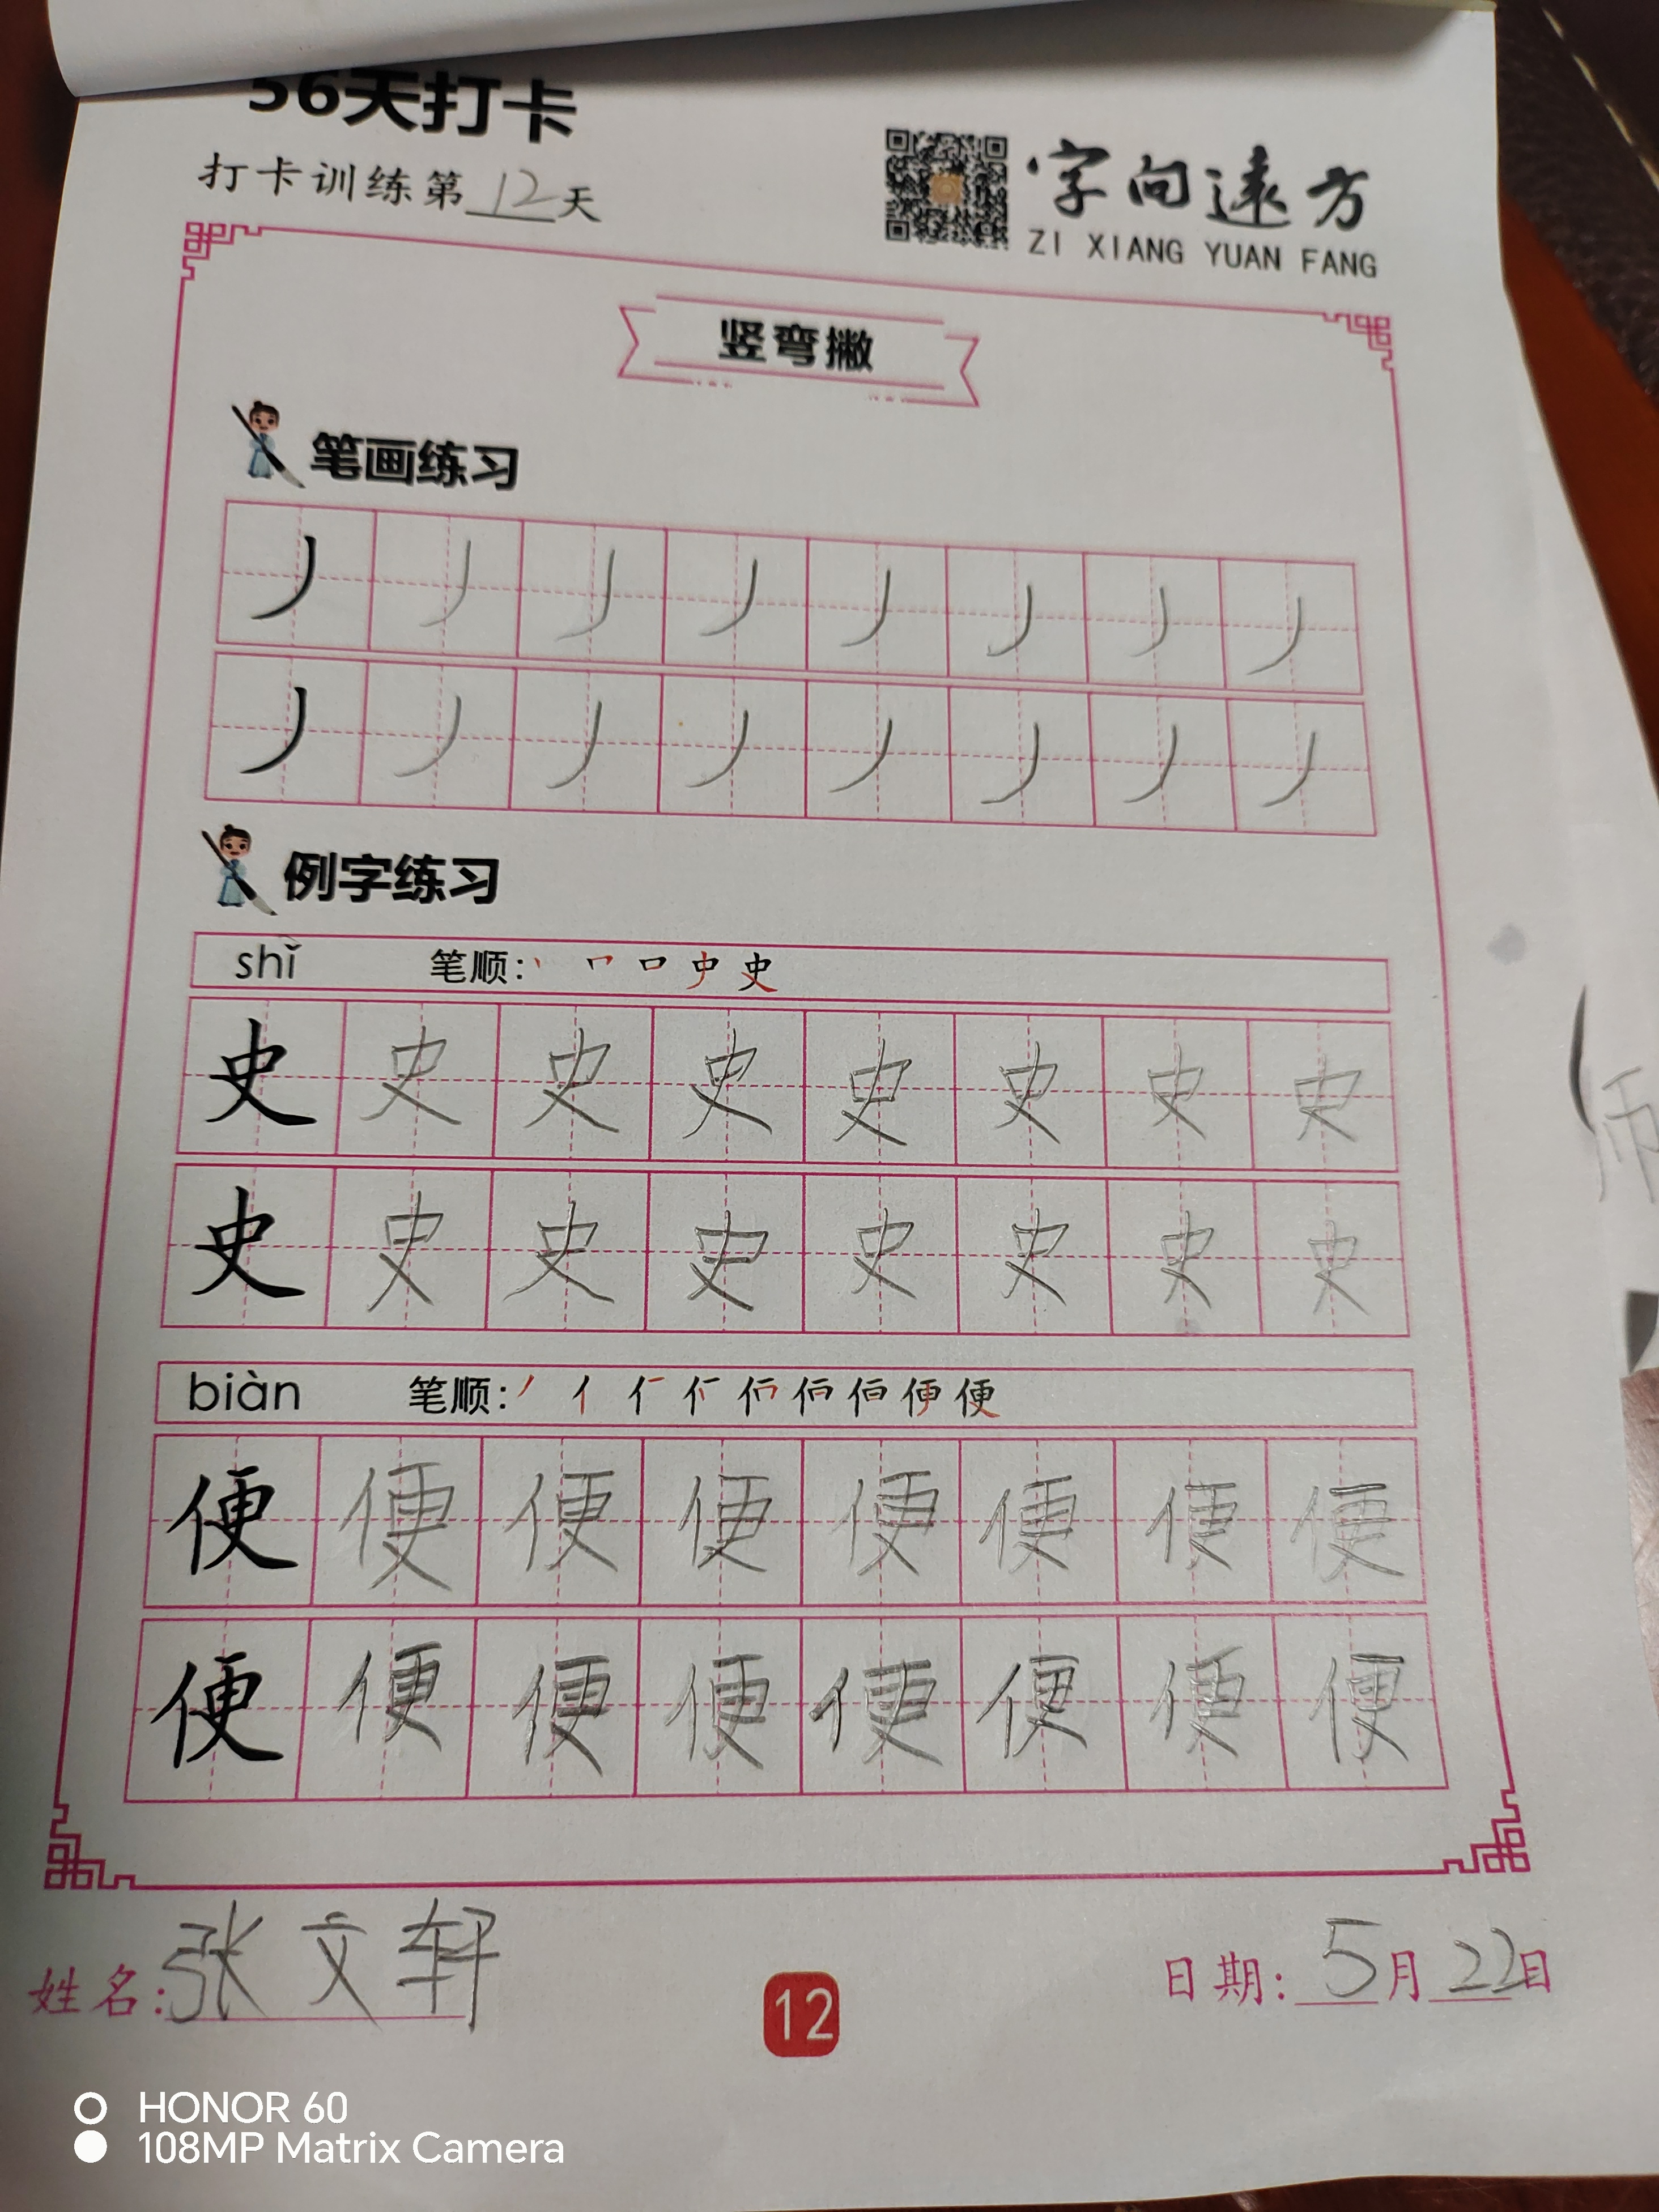 56天打卡
打卡训练第12天
字向远方
ZI XIANG YUAN FANG
竖弯撇
笔画练习
丿 丿 丿 丿 丿 丿 丿 丿
丿 丿 丿 丿 丿 丿 丿 丿
例字练习
shǐ 笔顺:
史 史 史 史 史 史 史 史
史 史 史 史 史 史 史 史
biàn 笔顺:
便 便 便 便 便 便 便 便
便 便 便 便 便 便 便 便
姓名:张文轩
12
日期:5月22日
师
HONOR 60
108MP Matrix Camera